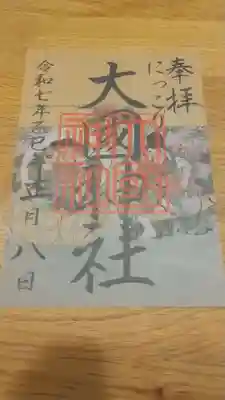 奉拝
にっこり
大國社
令和七年乙巳年正月八日